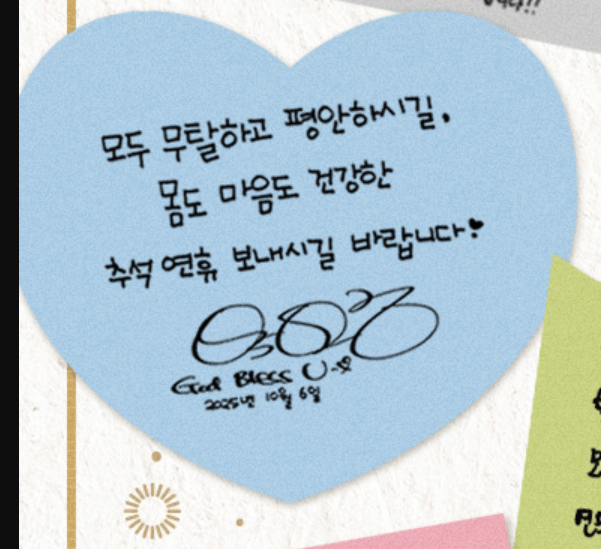 모두 무탈하고 평안하시길,
몸도 마음도 건강한
추석 연휴 보내시길 바랍니다!
God Bless U
2025년 10월 6일